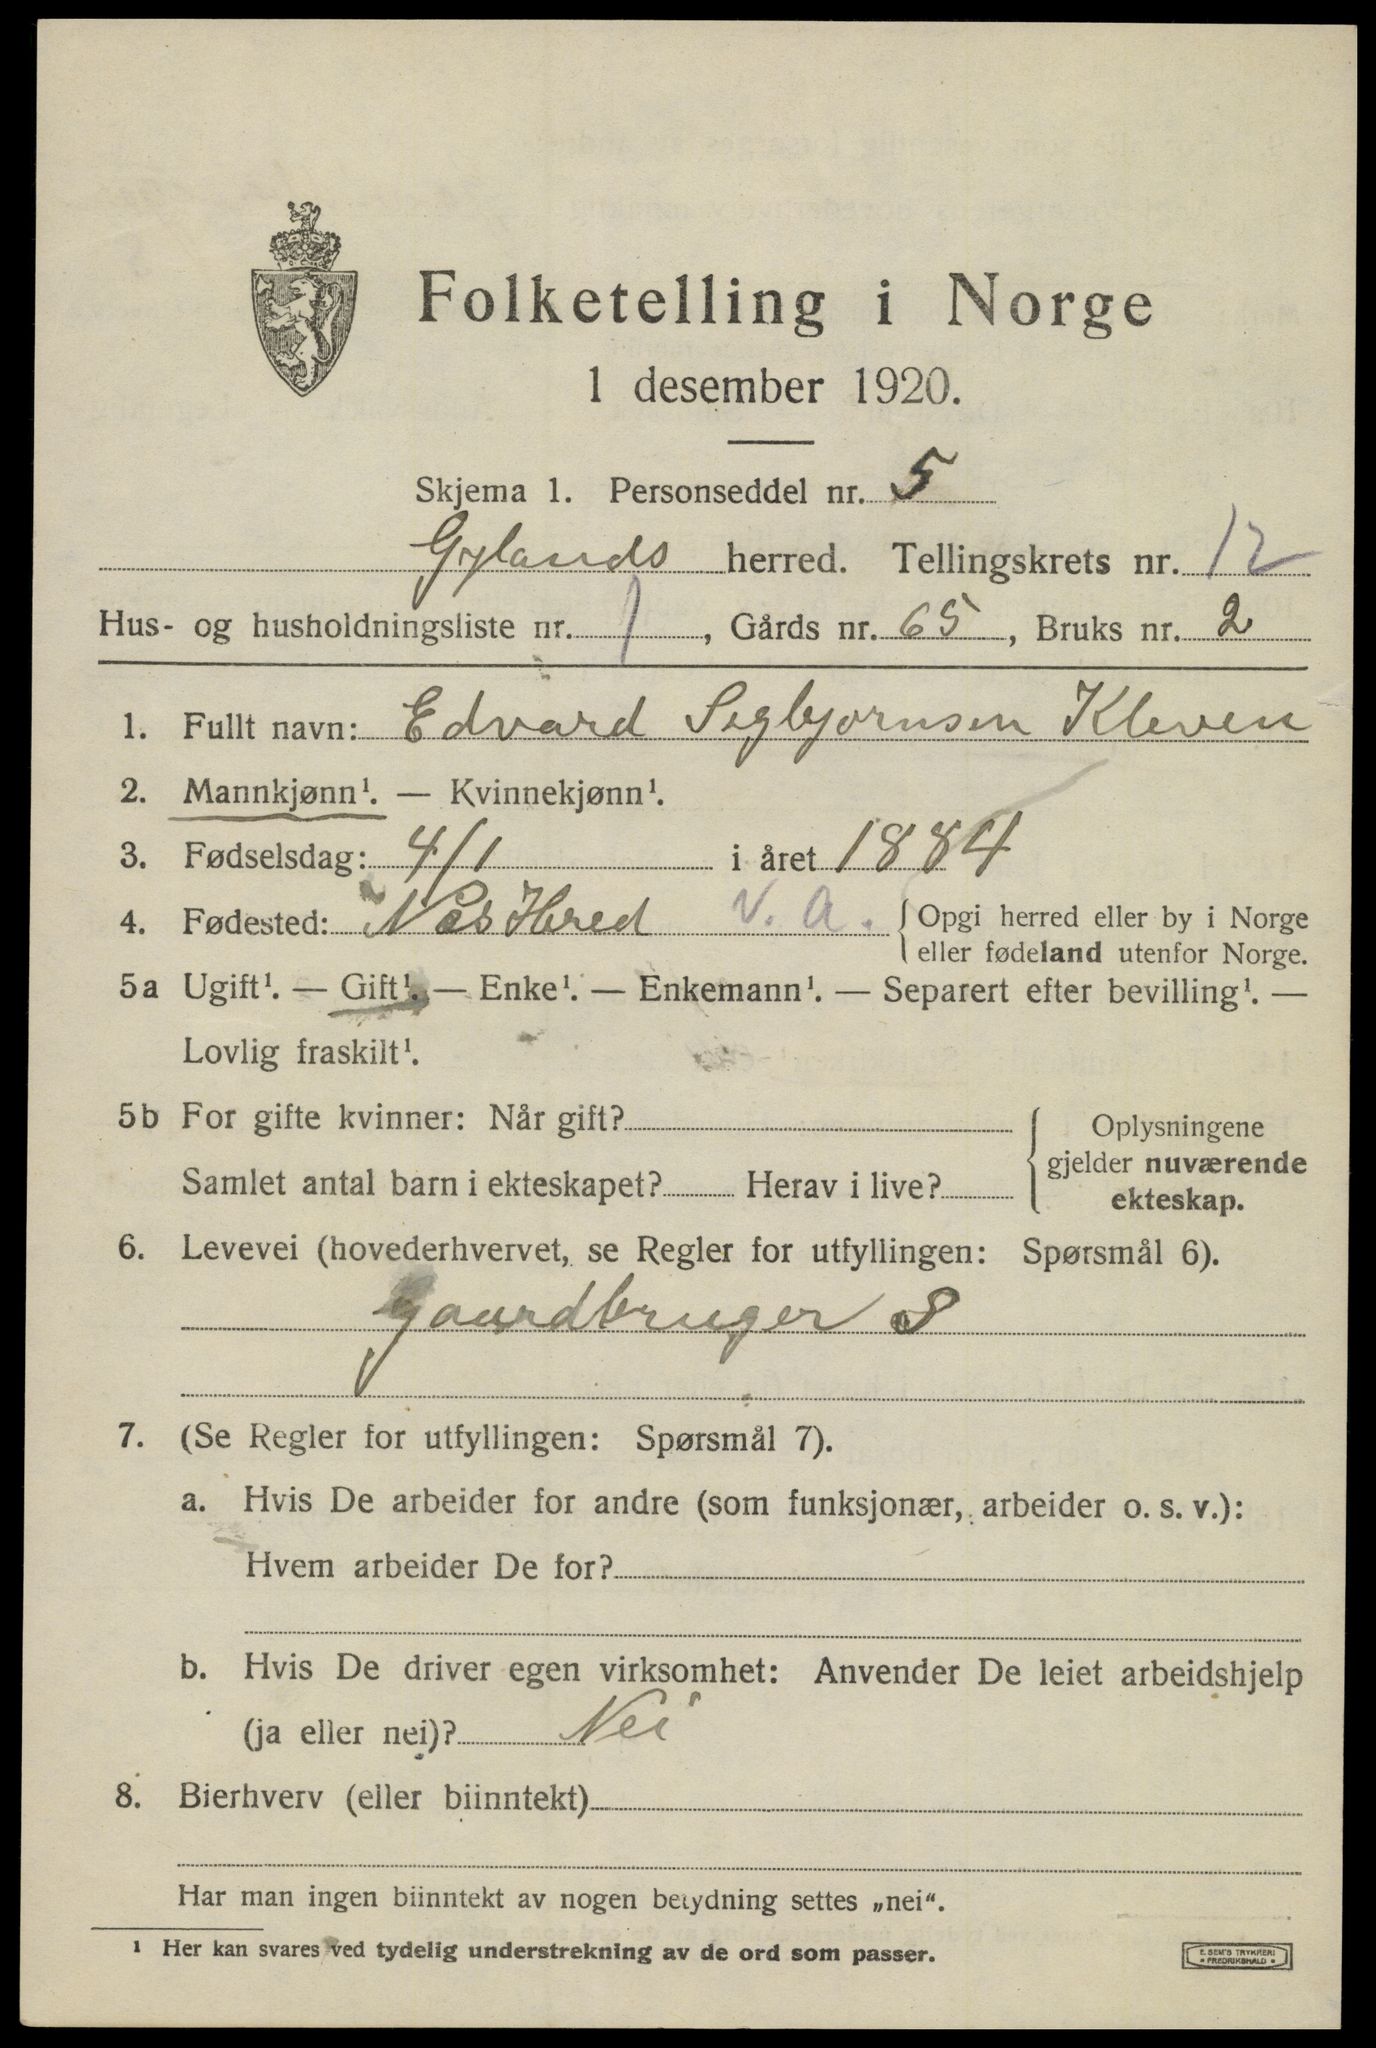 Folketelling i Norge
1 desember 1920.
Skjema 1. Personseddel nr. 5
Gylands herred. Tellingskrets nr. 12
Hus- og husholdningsliste nr. 1, Gårds nr. 65, Bruks nr. 2
1. Fullt navn: Edvard Sigbjornsen Kleven
2. Mannkjønn¹. — Kvinnekjønn¹.
3. Fødselsdag: 4/1 i året 1884
4. Fødested: Nes Hred V. A. { Opgi herred eller by i Norge
eller fødeland utenfor Norge.
5a Ugift¹. — Gift¹. — Enke¹. — Enkemann¹. — Separert efter bevilling¹. —
Lovlig fraskilt¹.
5b For gifte kvinner: Når gift?
Samlet antal barn i ekteskapet? Herav i live?
Oplysningene
gjelder nuværende
ekteskap.
6. Levevei (hovederhvervet, se Regler for utfyllingen: Spørsmål 6).
Gaardbruger S
7. (Se Regler for utfyllingen: Spørsmål 7).
a. Hvis De arbeider for andre (som funksjonær, arbeider o. s. v.):
Hvem arbeider De for?
b. Hvis De driver egen virksomhet: Anvender De leiet arbeidshjelp
(ja eller nei)? Nei
8. Bierhverv (eller biinntekt)
Har man ingen biinntekt av nogen betydning settes „nei“.
¹ Her kan svares ved tydelig understrekning av de ord som passer.
E. SEM'S TRYKKERI
FREDRIKSHALD